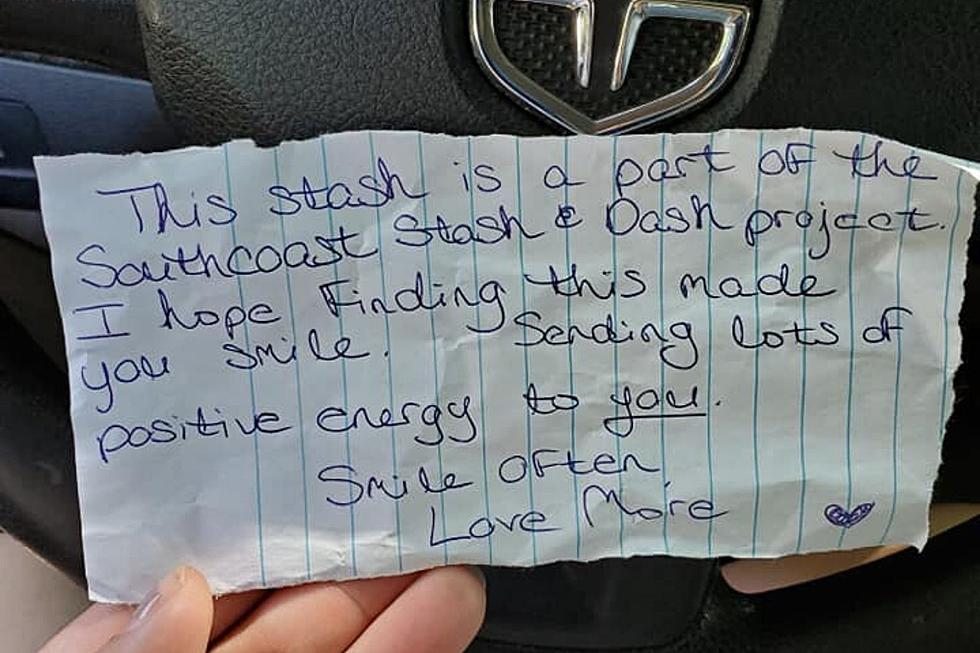 This stash is a part of the
Southcoast Stash & Dash project.
I hope Finding this made
you smile. Sending lots of
positive energy to you.
Smile often
Love More